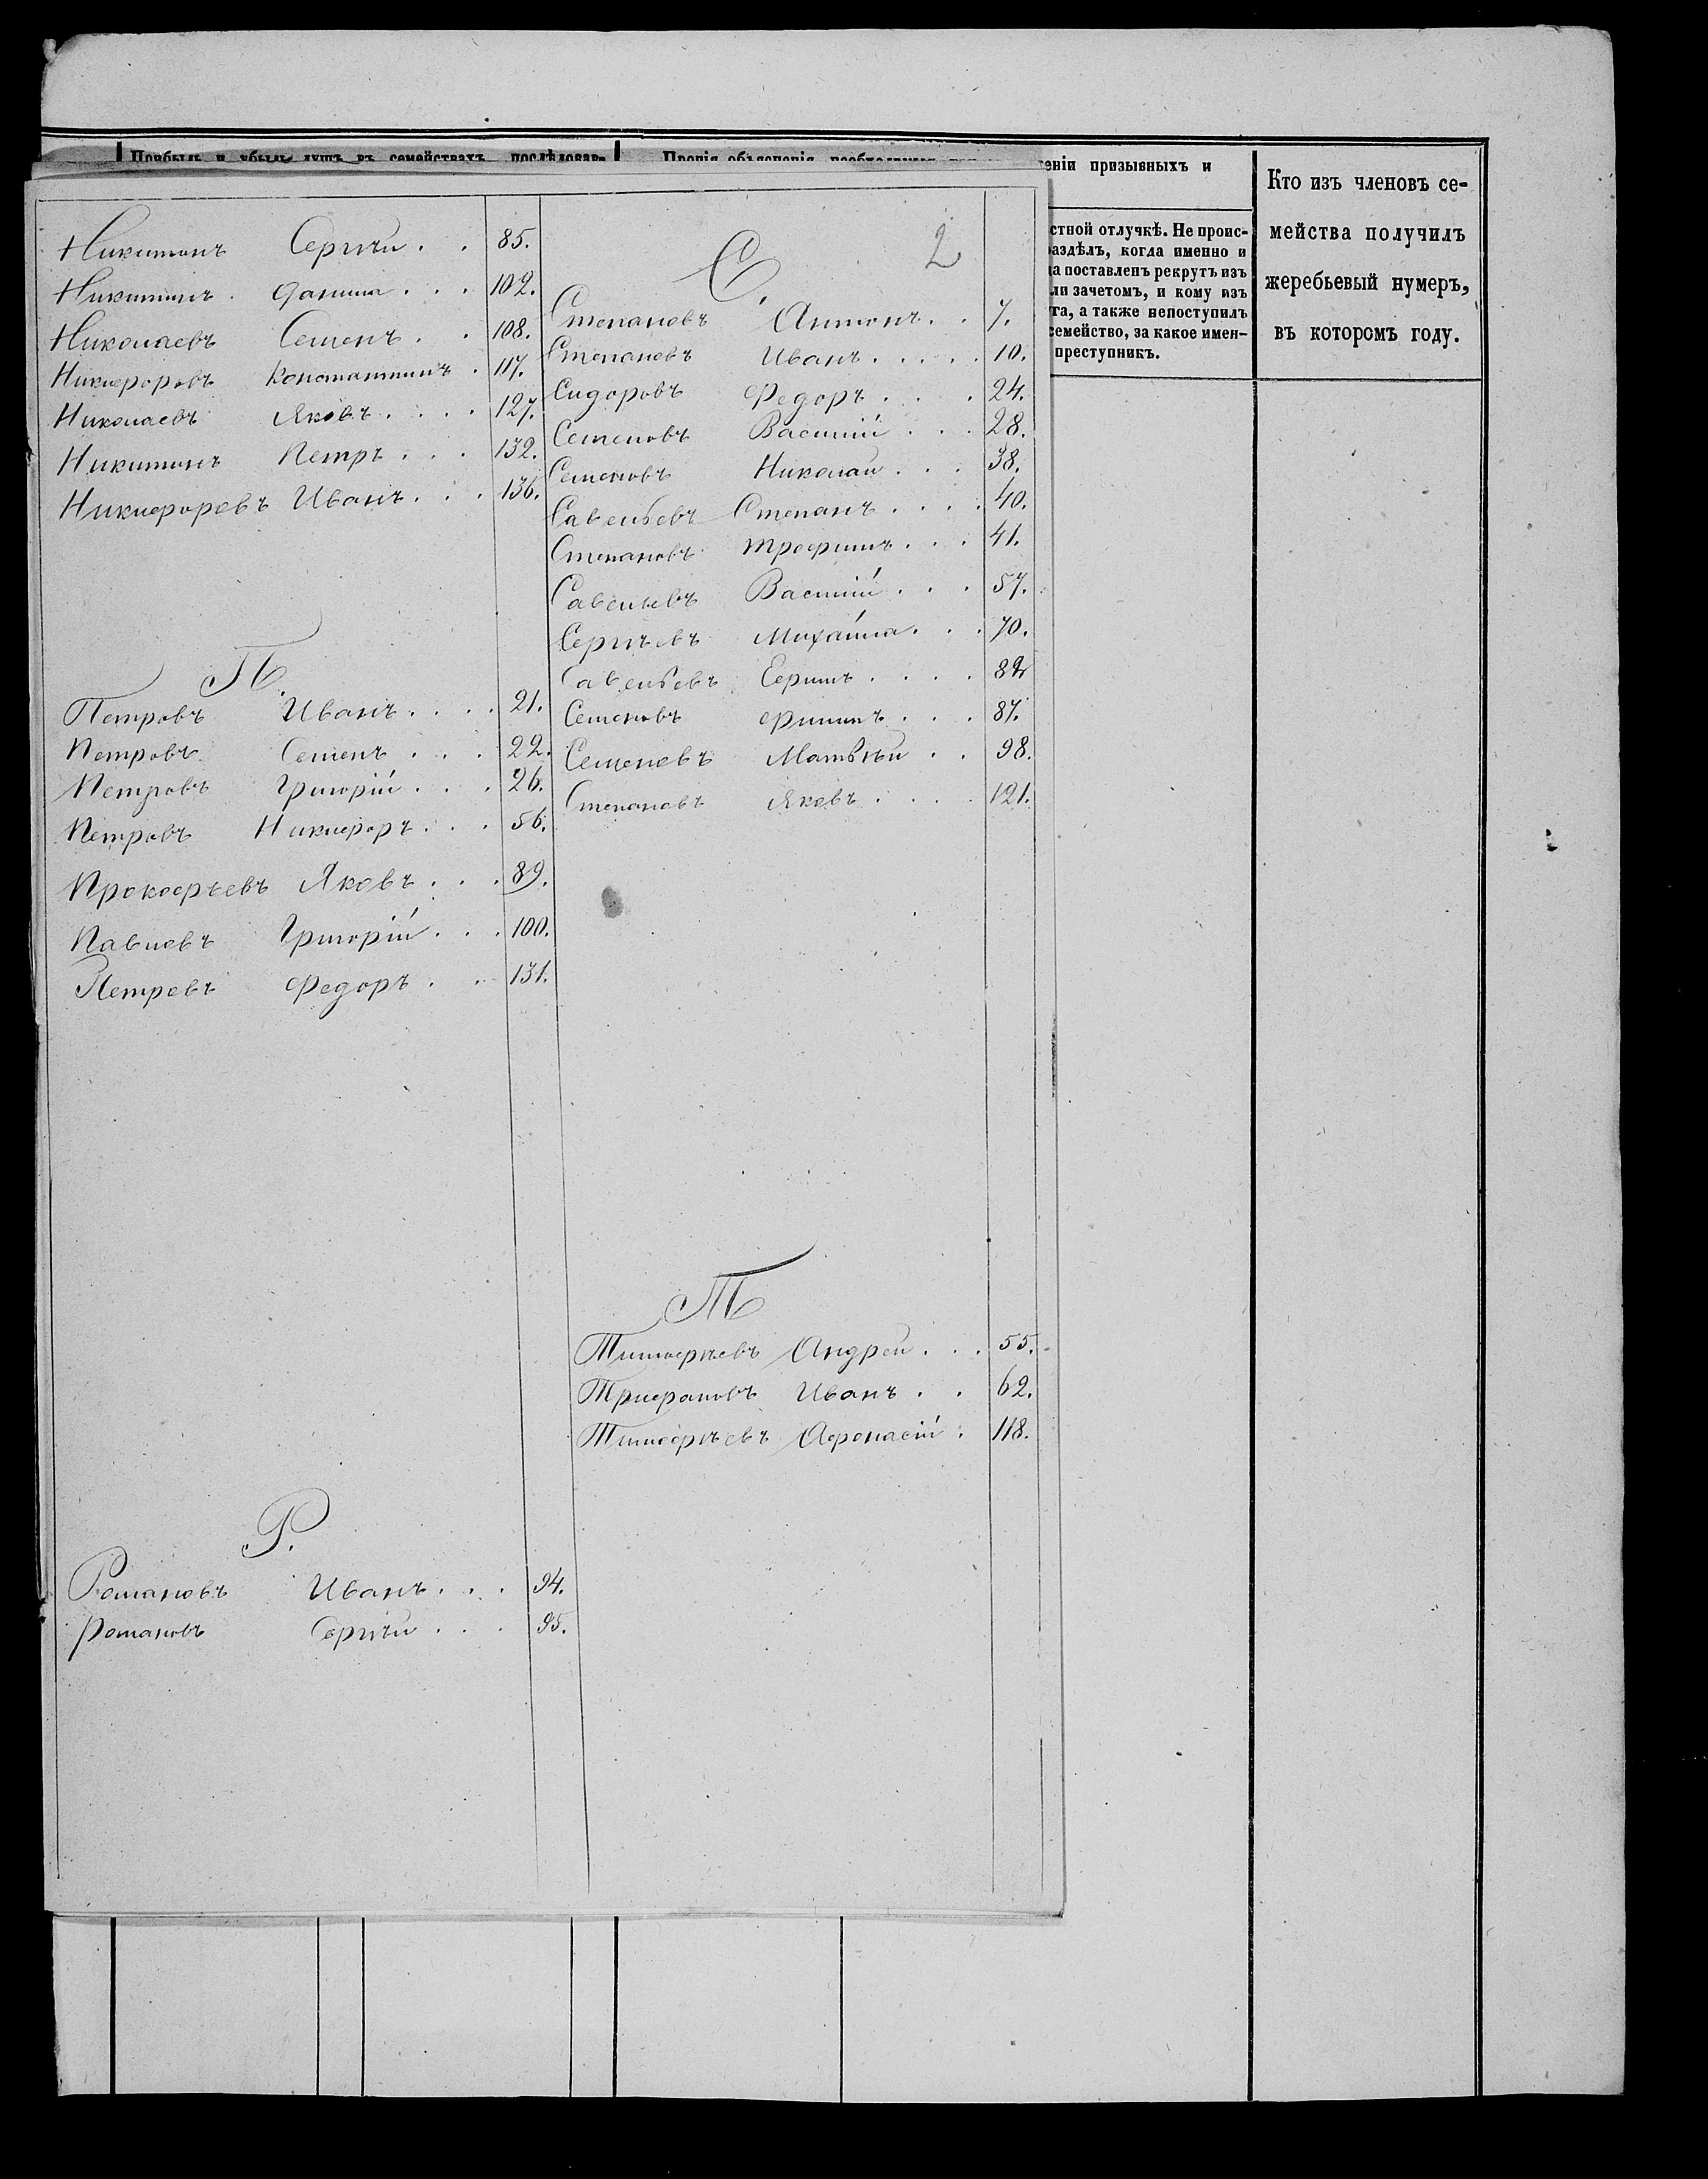 Никитинъ Сергѣй . . 85.
Никитинъ . Данила . . . 102.
Николаевъ Семенъ . . 108.
Никифоровъ Константинъ . 117.
Николаевъ Яковъ . . . . 127.
Никитинъ Петръ . . . 132.
Никифоровъ Иванъ . . . 136.
П.
Петровъ Иванъ . . . . 21.
Петровъ Семенъ . . . 22.
Петровъ Григорій . . . 26.
Петровъ Никифоръ . . . 56.
Прокофьевъ Яковъ . . . 89.
Павловъ Григорій . . . 100.
Петровъ Федоръ . . 131.
Р.
Романовъ Иванъ . . . 94.
Романовъ Сергѣй . . . 95.
2
С.
Степановъ Антонъ . . 7.
Степановъ Иванъ . . . . . 10.
Сидоровъ Федоръ . . . . 24.
Семеновъ Василій . . . 28.
Семеновъ Николай . . . 38.
Савельевъ Степанъ . . . . 40.
Степановъ Трофимъ . . . 41.
Савельевъ Василій . . . 57.
Сергѣевъ Михайла . . . 70.
Савельевъ Ефимъ . . . . 82
Семеновъ Филипъ . . . 87.
Семеновъ Матвѣй . . 98.
Степановъ Яковъ . . . . 121.
Т
Тимофѣевъ Андрей . . . 55.
Трифановъ Иванъ . . 62.
Тимофѣевъ Афонасій . 118.
Прибыль и убыль душъ въ семействахъ послѣдовав-
Прочія объясненія, необходимыя
еніи призывныхъ и
стной отлучкѣ. Не проис-
аздѣлъ, когда именно и
а поставленъ рекрутъ изъ
ли зачетомъ, и кому изъ
та, а также непоступилъ
семейство, за какое имен-
преступникъ.
Кто изъ членовъ се-
мейства получилъ
жеребьевый нумеръ,
въ которомъ году.